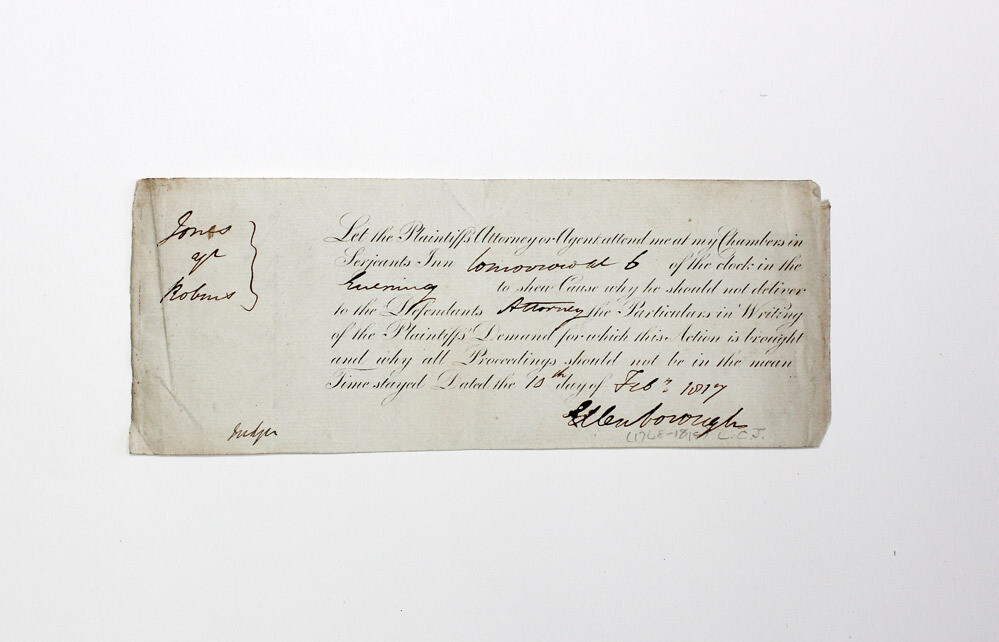 Jones
agt
Robins
Let the Plaintiffs Attorney or Agent attend me at my Chambers in
Serjeants Inn tomorrow at 6 of the clock in the
Evening to shew Cause why he should not deliver
to the Defendants Attorney the Particulars in Writing
of the Plaintiffs Demand for which this Action is brought
and why all Proceedings should not be in the mean
Time stayed Dated the 10th day of Feby 1817
Ellenborough
L.C.J.